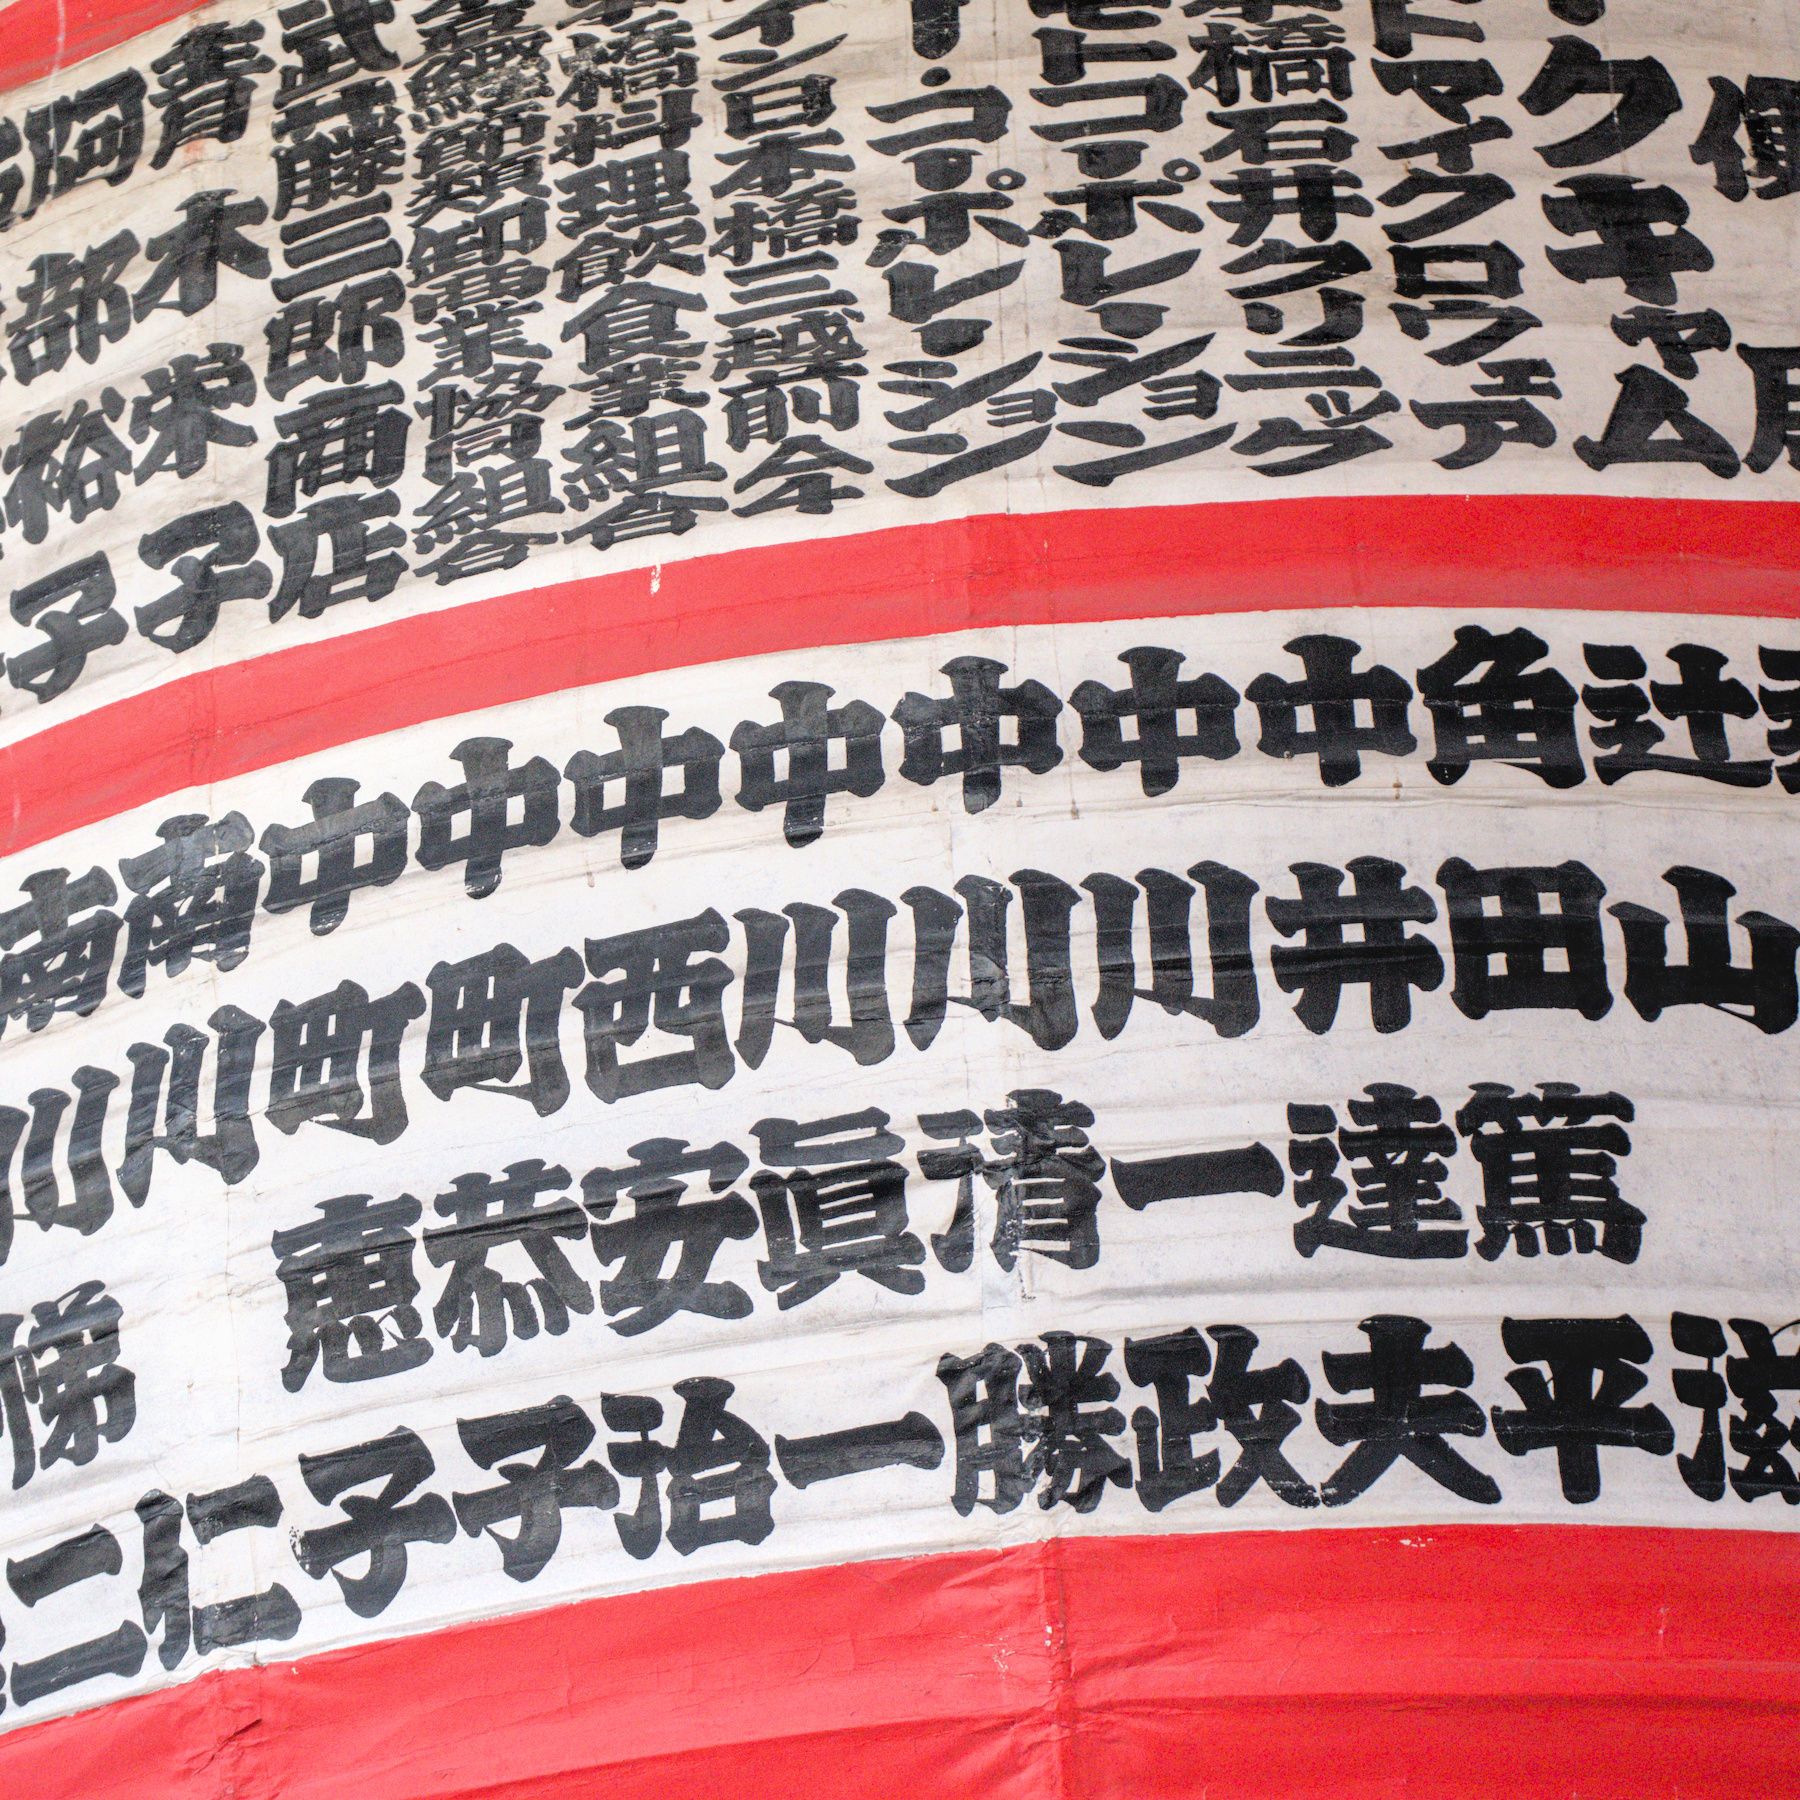 クキャム
ドマイクロウェア
橋石井クリニック
モトコーポレーション
ー・コーポレーション
イン日本橋三越前会
橋料理飲食業組合
節類卸商業協同組合
武藤三郎商店
青木栄子
阿部裕子
辻山滋
角田篤平
中井達夫
中川一政
中川清勝
中川眞一
中西安治
中町恭子
中町惠子
南川仁
南川悌二